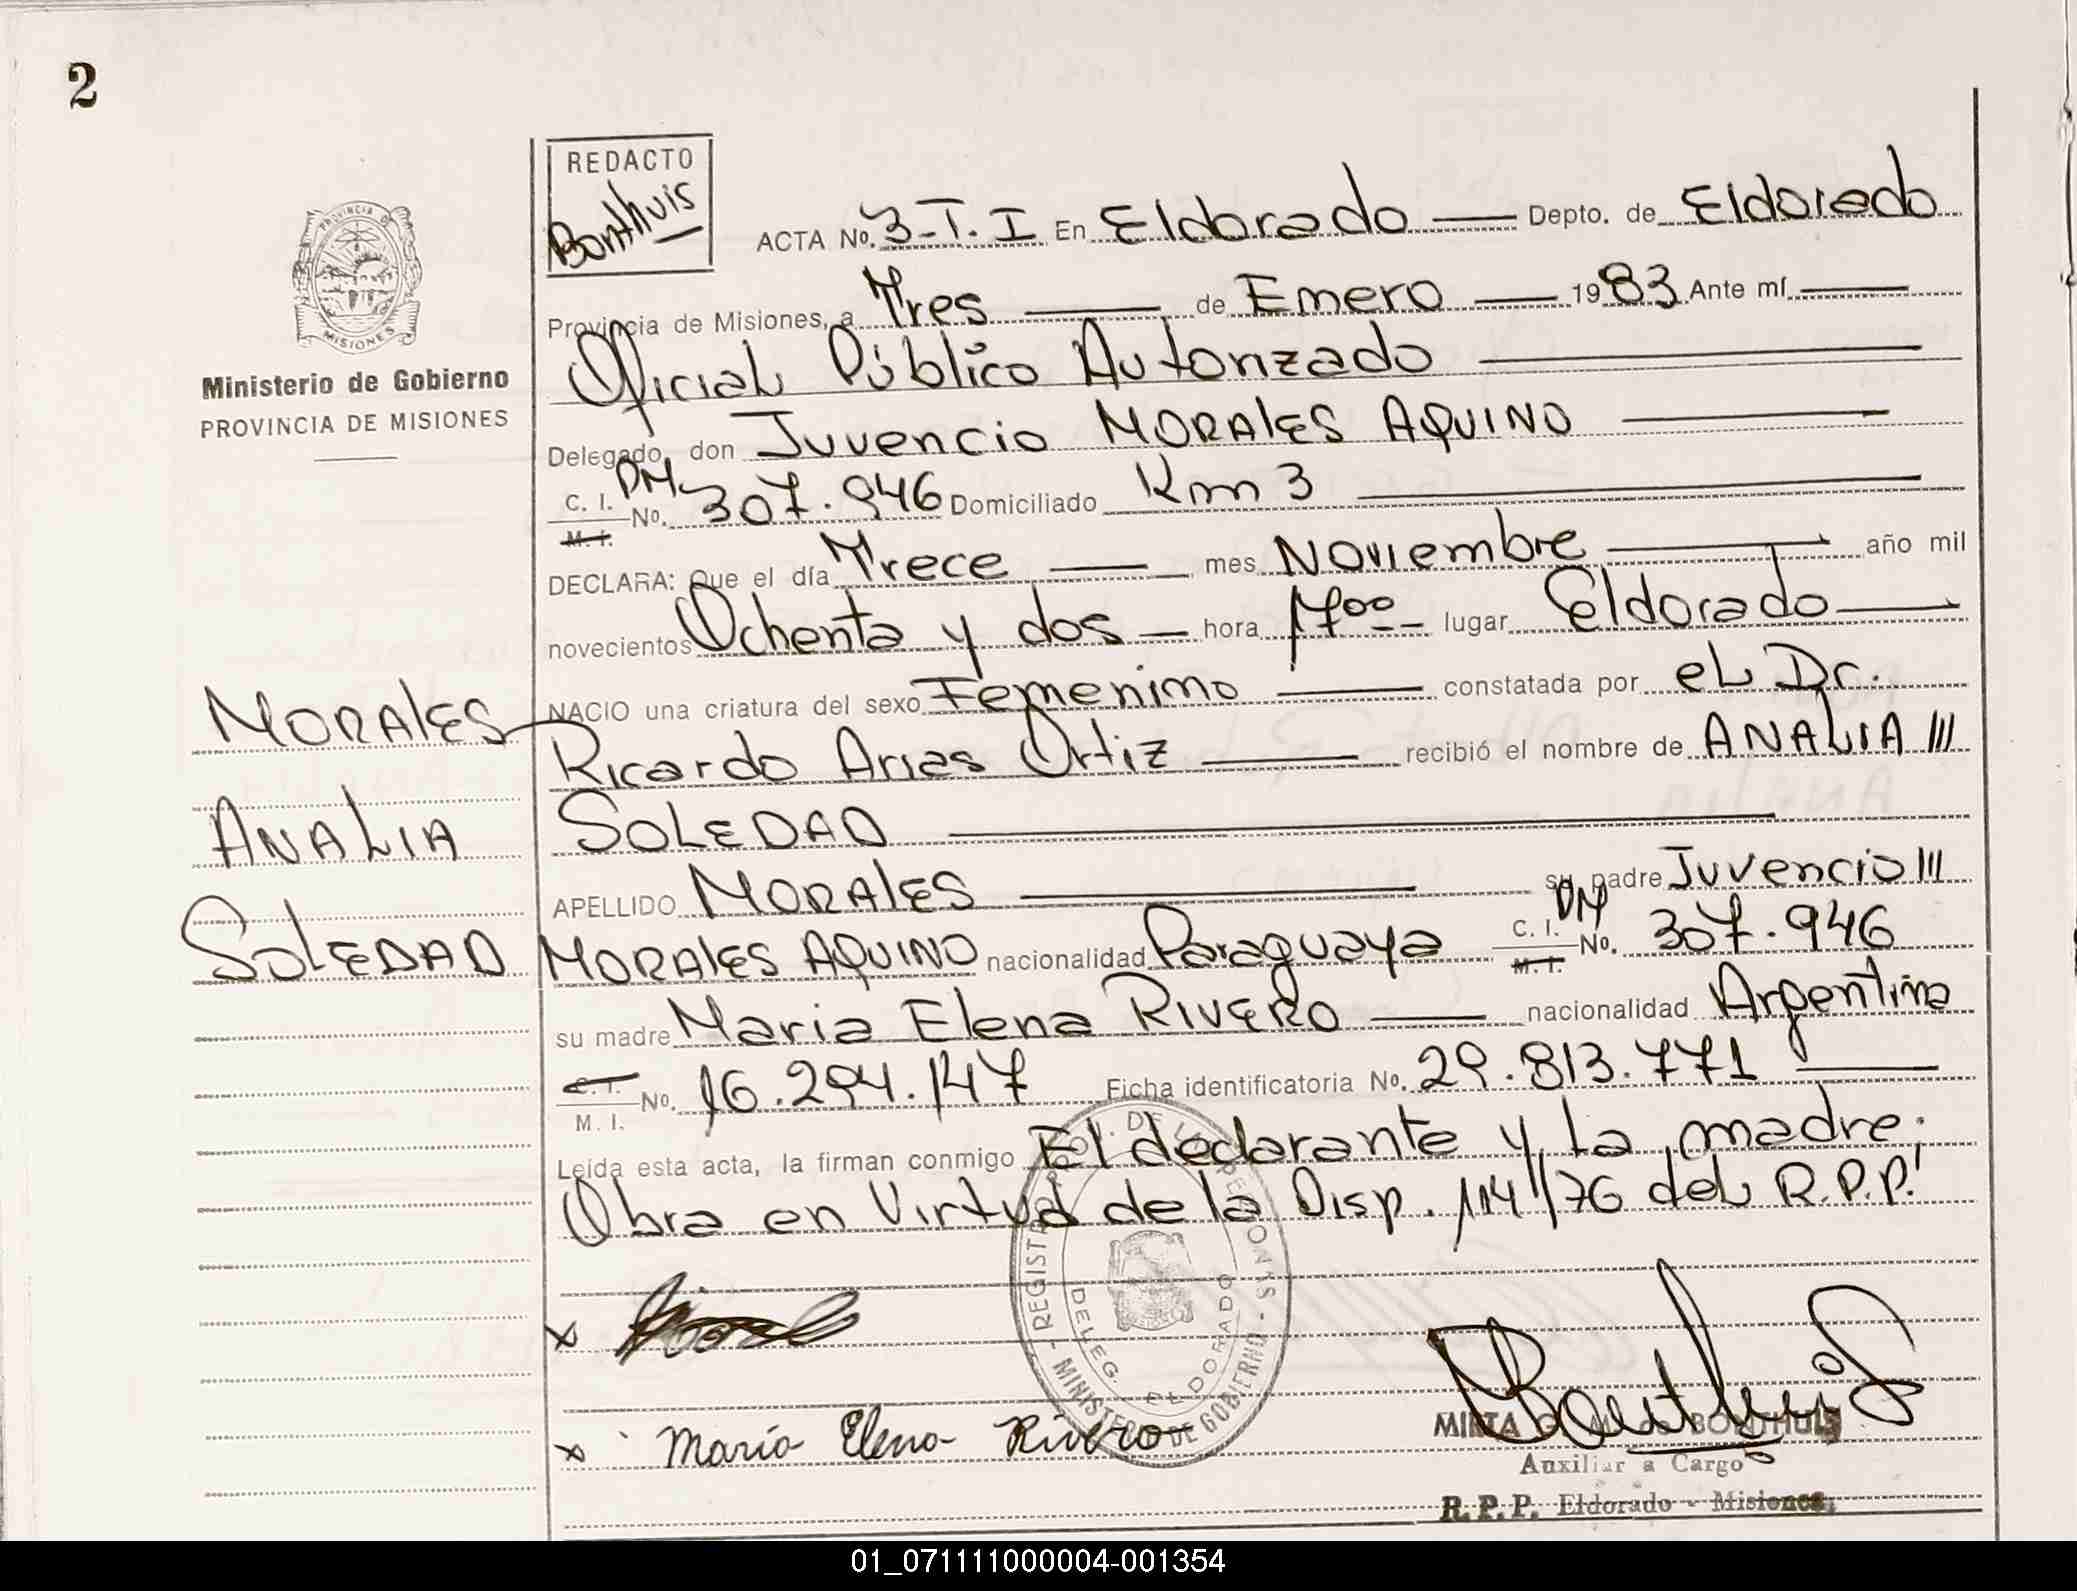 2
REDACTO
Bonthuis
ACTA No. 3-T.I En Eldorado Depto. de Eldorado
Provincia de Misiones, a Tres de Enero 1983 Ante mí
Oficial Público Autorizado
Delegado, don Juvencio MORALES AQUINO
DM
C. I. No. 307.946 Domiciliado Km 3
M. I.
DECLARA: Que el día Trece mes Noviembre año mil
novecientos Ochenta y dos hora 17oo lugar Eldorado
NACIO una criatura del sexo Femenino constatada por el Dr.
Ricardo Arias Ortiz recibió el nombre de ANALIA III
SOLEDAD
APELLIDO MORALES su padre Juvencio III
DM
MORALES AQUINO nacionalidad Paraguaya C. I. No. 307.946
M. I.
su madre Maria Elena RIVERO nacionalidad Argentina
C. I. No. 16.294.147 Ficha identificatoria No. 29.813.771
M. I.
Leída esta acta, la firman conmigo El declarante y la madre.
Obra en Virtud de la Disp. 114/76 del R.P.P.
x
x María Elena Rivero
Bonthuis
MIRTA BONTHUIS
Auxiliar a Cargo
R. P. P. Eldorado - Misiones
PROVINCIA DE
MISIONES
Ministerio de Gobierno
PROVINCIA DE MISIONES
MORALES
ANALIA
SOLEDAD
REGISTRO PROV. DE LAS PERSONAS
- MINISTERIO DE GOBIERNO -
DELEG. ELDORADO
01_071111000004-001354